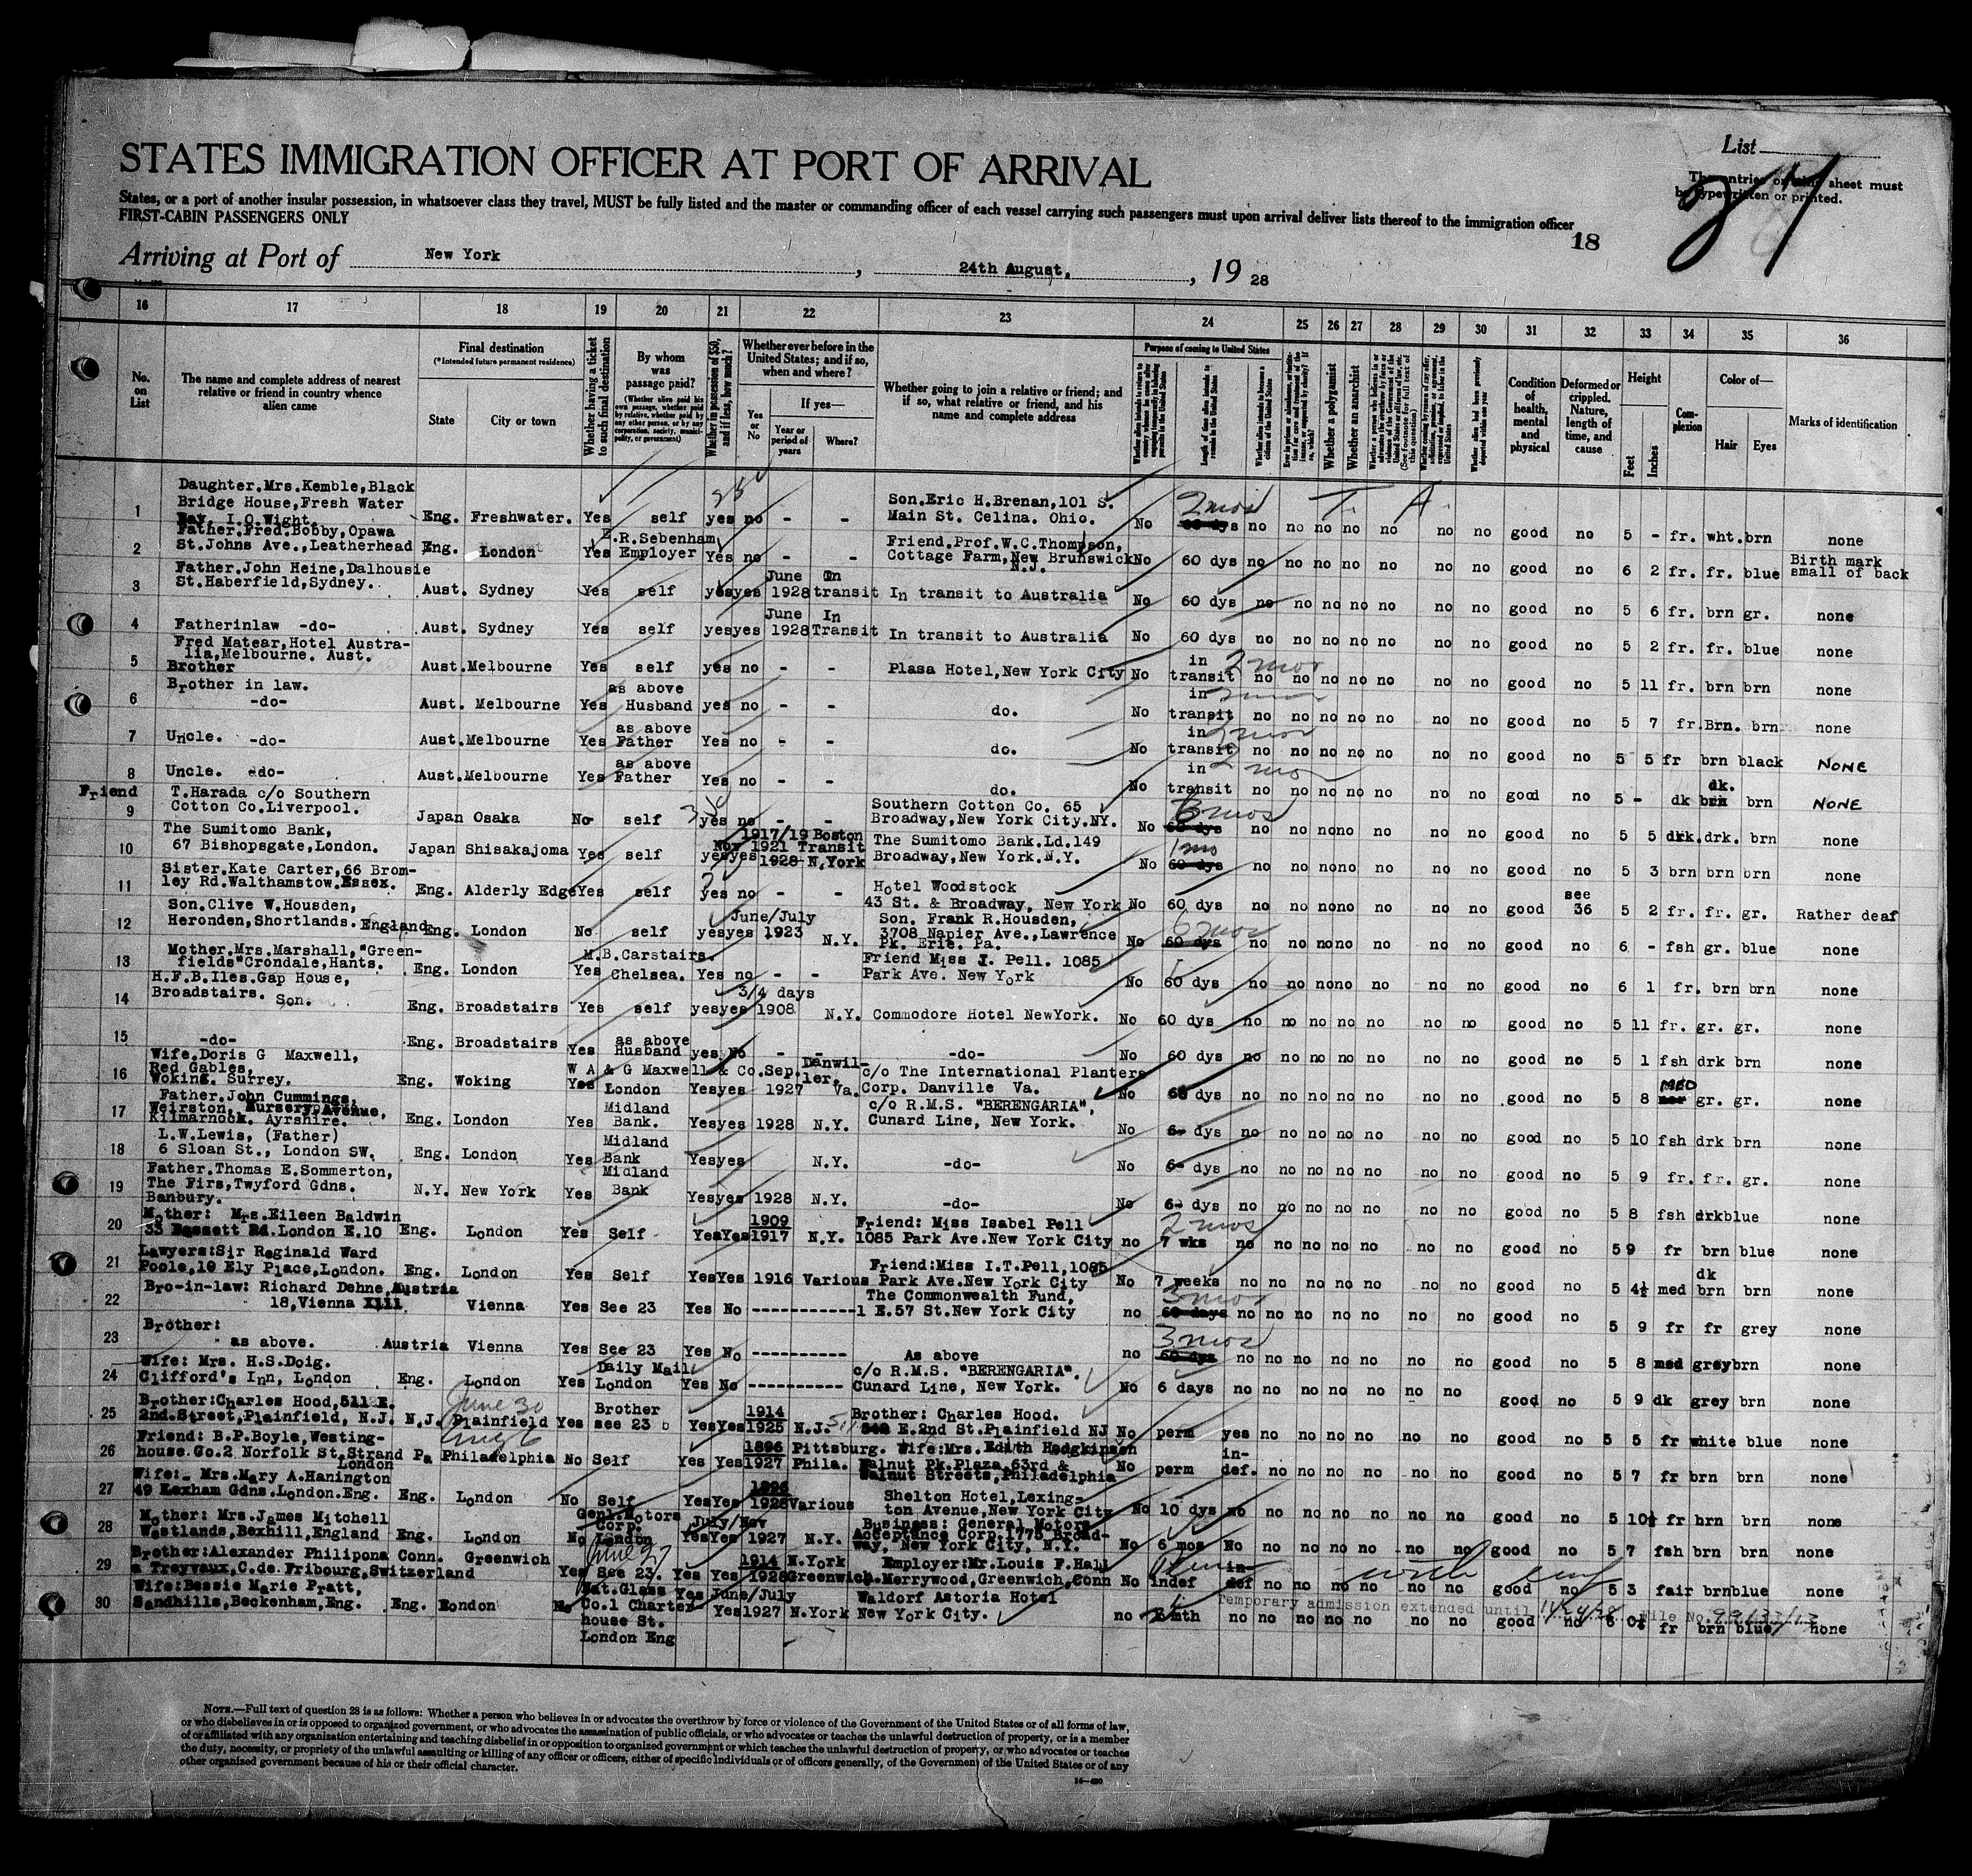 List
The entries on this sheet must
be typewritten or printed.
STATES IMMIGRATION OFFICER AT PORT OF ARRIVAL
States, or a port of another insular possession, in whatsoever class they travel, MUST be fully listed and the master or commanding officer of each vessel carrying such passengers must upon arrival deliver lists thereof to the immigration officer
FIRST-CABIN PASSENGERS ONLY
18
Arriving at Port of New York, 24th August, 1928
16 17 18 19 20 21 22 23 24 25 26 27 28 29 30 31 32 33 34 35 36
No. on List
The name and complete address of nearest relative or friend in country whence alien came
Final destination
(*Intended future permanent residence)
State City or town
Whether having a ticket to such final destination
By whom was passage paid?
(Whether alien paid his own passage, whether paid by relative, whether paid by any other person, or by any corporation, society, municipality, or government)
Whether in possession of $50, and if less, how much?
Whether ever before in the United States; and if so, when and where?
Yes or No
If yes—
Year or period of years Where?
Whether going to join a relative or friend; and if so, what relative or friend, and his name and complete address
Purpose of coming to United States
Length of time alien intends to remain in the United States
Whether alien intends to become a citizen of the United States
Whether a polygamist
Whether an anarchist
Whether alien had been previously deported within one year
Condition of health, mental and physical
Deformed or crippled. Nature, length of time, and cause
Height
Feet Inches
Complexion
Color of—
Hair Eyes
Marks of identification
1 Daughter.Mrs.Kemble,Black
Bridge House,Fresh Water
Bay, I.O.Wight. Eng. Freshwater. Yes self yes no - - Son.Eric H.Brenan,101 S.
Main St. Celina. Ohio. No 2 mos no no no no no no no good no 5 - fr. wht. brn none
2 Father.Fred.Bobby,Opawa
St.Johns Ave.,Leatherhead Eng. London Yes E.R.Sebenham, Employer Yes no - - Friend.Prof.W.C.Thompson,
Cottage Farm,New Brunswick N.J. No 60 dys no no no no no no no good no 6 2 fr. fr. blue Birth mark small of back
3 Father.John Heine,Dalhousie
St.Haberfield,Sydney. Aust. Sydney Yes self yes yes June 1928 In transit In transit to Australia No 60 dys no no no no no no no good no 5 6 fr. brn gr. none
4 Fatherinlaw -do- Aust. Sydney Yes self yes yes June 1928 In Transit In transit to Australia No 60 dys no no no no no no no good no 5 2 fr. fr. blue none
5 Fred Matear,Hotel Austra-
lia,Melbourne. Aust.
Brother Aust. Melbourne Yes self yes no - - Plasa Hotel,New York City No in transit 2 mos no no no no no no no good no 5 11 fr. brn brn none
6 Brother in law.
-do- Aust. Melbourne Yes as above Husband yes no - - do. No in transit no no no no no no no good no 5 7 fr. Brn. brn none
7 Uncle. -do- Aust. Melbourne Yes as above Father Yes no - - do. No in transit no no no no no no no good no 5 5 fr brn black NONE
8 Uncle. -do- Aust. Melbourne Yes as above Father Yes no - - do. No in transit no no no no no no no good no 5 - dk dk. brn brn NONE
9 Friend T.Harada c/o Southern
Cotton Co.Liverpool. Japan Osaka No self yes no - - Southern Cotton Co. 65
Broadway,New York City.NY. No 60 dys no no no no no no no good no 5 5 drk. drk. brn none
10 The Sumitomo Bank,
67 Bishopsgate,London. Japan Shisakajoma Yes self yes yes 1917/19 Boston
Nov 1921 Transit
1928 N.York The Sumitomo Bank.Ld.149
Broadway,New York.N.Y. No 1 mo 60 dys no no no no no no no good no 5 3 brn brn brn none
11 Sister.Kate Carter,66 Brom-
ley Rd.Walthamstow.Essex. Eng. Alderly Edge Yes self yes no - - Hotel Woodstock
43 St. & Broadway, New York No 60 dys no no no no no no no good see 36 5 2 fr. fr. gr. Rather deaf
12 Son.Clive W.Housden,
Heronden,Shortlands.England Eng. London No self yes yes June/July 1923 N.Y. Son. Frank R.Housden,
3708 Napier Ave.,Lawrence
Pk. Erie. Pa. No 6 mos 60 dys no no no no no no no good no 6 - fsh gr. blue none
13 Mother.Mrs.Marshall,"Green-
fields"Crondale,Hants. Eng. London Yes M.B.Carstairs. Chelsea. Yes no - - Friend Miss J. Pell. 1085
Park Ave. New York No 60 dys no no no no no no no good no 6 1 fr. brn brn none
14 H.F.B.Iles.Gap House,
Broadstairs. Son. Eng. Broadstairs Yes self yes yes 3/4 days 1908 N.Y. Commodore Hotel NewYork. No 60 dys no no no no no no no good no 5 11 fr. gr. gr. none
15 -do- Eng. Broadstairs Yes as above Husband yes No - - -do- No 60 dys no no no no no no no good no 5 1 fsh drk brn none
16 Wife.Doris G Maxwell,
Red Gables,
Woking. Surrey. Eng. Woking Yes W A & G Maxwell & Co. London Yes yes Sep. 1927 Danwiller. Va. c/o The International Planters
Corp. Danville Va. No 60 dys no no no no no no no good no 5 8 MED gr. gr. none
17 Father.John Cummings,
Weirston, Nursery Avenue,
Kilmarnock. Ayrshire. Eng. London Yes Midland Bank. Yes yes 1928 N.Y. c/o R.M.S. "BERENGARIA",
Cunard Line, New York. No 6- dys no no no no no no no good no 5 10 fsh drk brn none
18 L.W.Lewis, (Father)
6 Sloan St., London SW. Eng. London Yes Midland Bank Yes yes N.Y. -do- No 6- dys no no no no no no no good no 5 9 fr. fr. gr. none
19 Father.Thomas E.Sommerton,
The Firs,Twyford Gdns.
Banbury. N.Y. New York Yes Midland Bank Yes yes 1928 N.Y. -do- No 6- dys no no no no no no no good no 5 8 fsh drk blue none
20 Mother: Mrs.Eileen Baldwin
33 Bassett Rd.London N.10 Eng. London Yes Self Yes Yes 1909 1917 N.Y. Friend: Miss Isabel Pell
1085 Park Ave.New York City no 2 mos 7 wks no no no no no no no good no 5 9 fr brn blue none
21 Lawyers:Sir Reginald Ward
Poole,10 Ely Place,London. Eng. London Yes Self Yes Yes 1916 Various Friend:Miss I.T.Pell,1085
Park Ave.New York City No 7 weeks no no no no no no no good no 5 4½ med dk brn brn none
22 Bro-in-law: Richard Dehne,Austria
18,Vienna XIII Vienna Yes See 23 Yes No ----------- The Commonwealth Fund,
1 E.57 St.New York City no 3 mos 60 days no no no no no no no good no 5 9 fr fr grey none
23 Brother:
as above. Austria Vienna Yes See 23 Yes No ---------- As above no 3 mos 60 dys no no no no no no no good no 5 8 med grey brn none
24 Wife: Mrs. H.S.Doig.
Clifford's Inn, London Eng. London Yes Daily Mail London Yes No ---------- c/o R.M.S. "BERENGARIA".
Cunard Line, New York. No 6 days no no no no no no no good no 5 9 dk grey brn none
25 Brother:Charles Hood,511 E.
2nd.Street,Plainfield, N.J. N.J. Plainfield June 30 Yes Brother see 23 Yes Yes 1914 1925 N.J. Brother: Charles Hood.
E.2nd St.Plainfield NJ No perm yes no no no no no no good no 5 5 fr white blue none
26 Friend: B.P.Boyle, Westing-
house.Co.2 Norfolk St.Strand
London Pa Philadelphia No Self Yes Yes 1896 Pittsburg.
1927 Phila. Wife:Mrs.Edith Hodgkinson
Walnut Pk.Plaza,63rd &
Walnut Streets,Philadelphia No perm in-def. no no no no no no good no 5 7 fr brn brn none
27 Wife: Mrs.Mary A.Hanington
49 Lexham Gdns.London.Eng. Eng. London No Self Yes Yes 1928 Various Shelton Hotel,Lexing-
ton Avenue,New York City No 10 dys no no no no no no no good no 5 10½ fr brn brn none
28 Mother: Mrs.James Mitchell
Westlands,Bexhill,England Eng. London No Genl.Motors Corp. London Yes Yes July/Nov 1927 N.Y. Business: General Motors
Acceptance Corp.1775 Broad-
way, New York City, N.Y. No 6 mos No no no no no no no good no 5 7 fsh brn brn none
29 Brother:Alexander Philipona Conn. Greenwich
a Treyvaux,C.de.Fribourg,Switzerland June 27 Yes See 23. Yes Yes 1914 N.York
1928 Greenwich. Employer:Mr.Louis F.Hall
Merrywood,Greenwich,Conn No Indef in-def no no no no no no good no 5 3 fair brn blue none
30 Wife:Bessie Marie Pratt,
Sandhills,Beckenham,Eng. Eng. London No Nat.Glass Co.1 Charter-
house St.
London Eng Yes Yes June/July 1927 N.York Waldorf Astoria Hotel
New York City. no mnth no no no no no no no good no 6 0½ fr brn blue none
Temporary admission extended until 11/24/28 File No.
NOTE.—Full text of question 28 is as follows: Whether a person who believes in or advocates the overthrow by force or violence of the Government of the United States or of all forms of law,
or who disbelieves in or is opposed to organized government, or who advocates the assassination of public officials, or who advocates or teaches the unlawful destruction of property, or is a member
of or affiliated with any organization entertaining and teaching disbelief in or opposition to organized government or which teaches the unlawful destruction of property, or who advocates or teaches
the duty, necessity, or propriety of the unlawful assaulting or killing of any officer or officers, either of specific individuals or of officers generally, of the Government of the United States or of any
other organized government because of his or their official character.